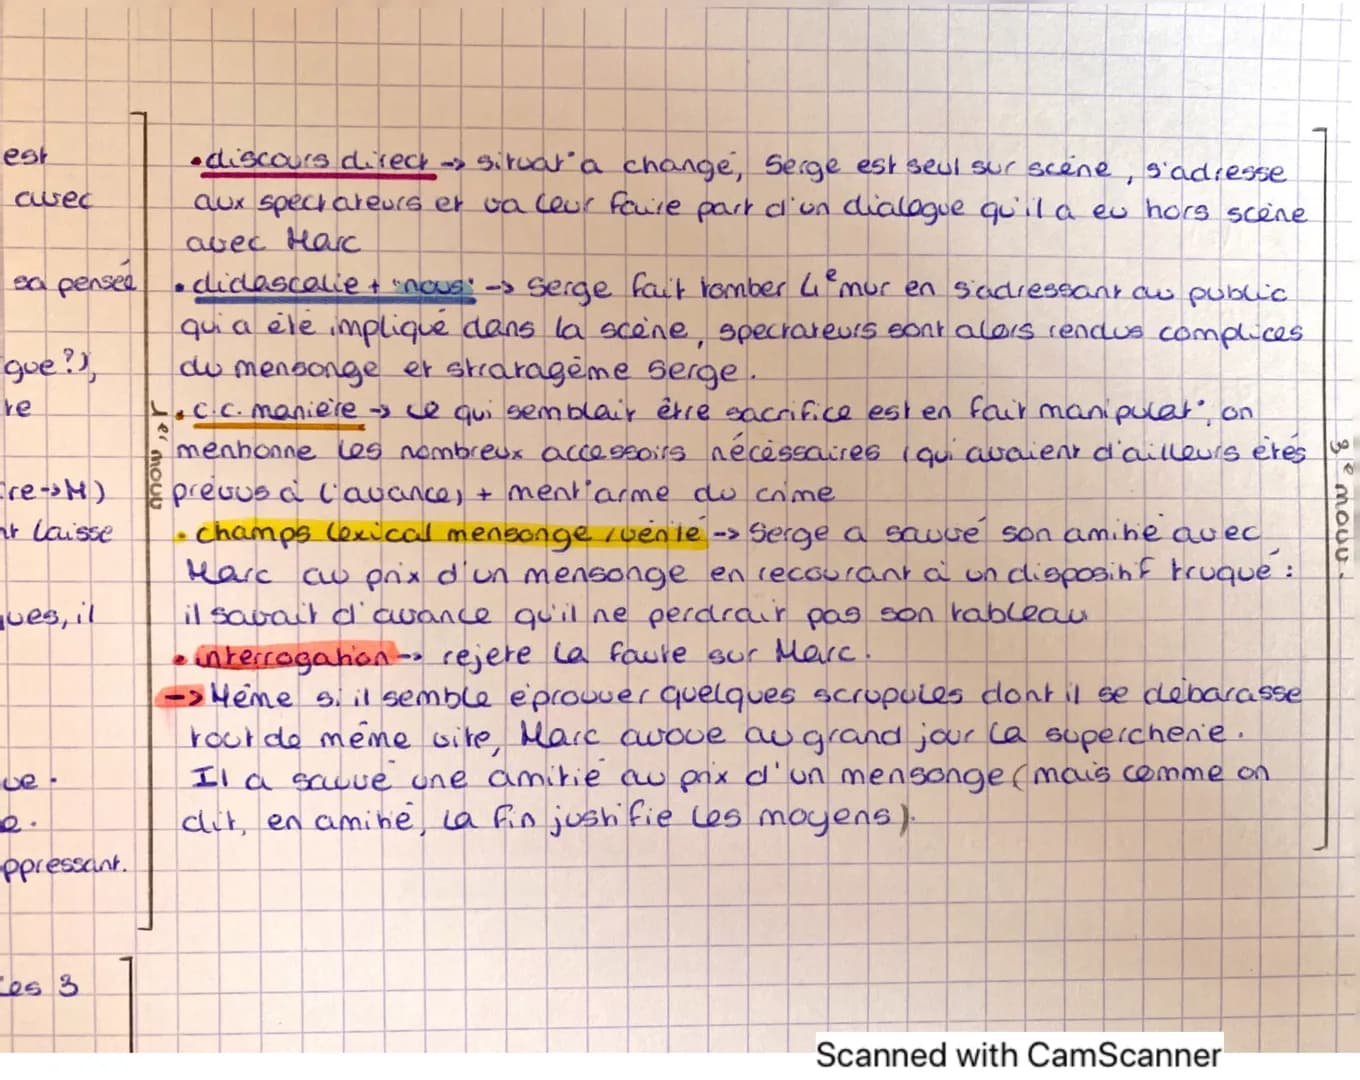 est
avec
sa pensée
gue?),
re
re->M)
nt laisse
ques, il
ue.
e.
ppressant.
ces 3
1er mouv
•discours direct -> situat° a changé, Serge est seul sur scène, s'adresse
aux spectateurs et va leur faire part d'un dialogue qu'il a eu hors scène
avec Marc
• didascalie + "nous" -> Serge fait tomber 4e mur en s'adressant au public
qui a été impliqué dans la scène, spectateurs sont alors rendus complices
du mensonge et stratagème Serge.
• c.c. manière -> ce qui semblait être sacrifice est en fait manipulat°, on
mentionne les nombreux accessoirs nécéssaires (qui avaient d'ailleurs étés
prévus à l'avance) + ment° arme du crime
• champs lexical mensonge/vérité -> Serge a sauvé son amitié avec
Marc au prix d'un mensonge en recourant à un dispositif truqué :
il savait d'avance qu'il ne perdrait pas son tableau
• interrogation -> rejete la faute sur Marc.
-> Même si il semble éprouver quelques scrupules dont il se débarasse
tout de même vite, Marc avoue au grand jour la supercherie.
Il a sauvé une amitié au prix d'un mensonge (mais comme on
dit, en amitié, la fin justifie les moyens).
3e mouv.
Scanned with CamScanner